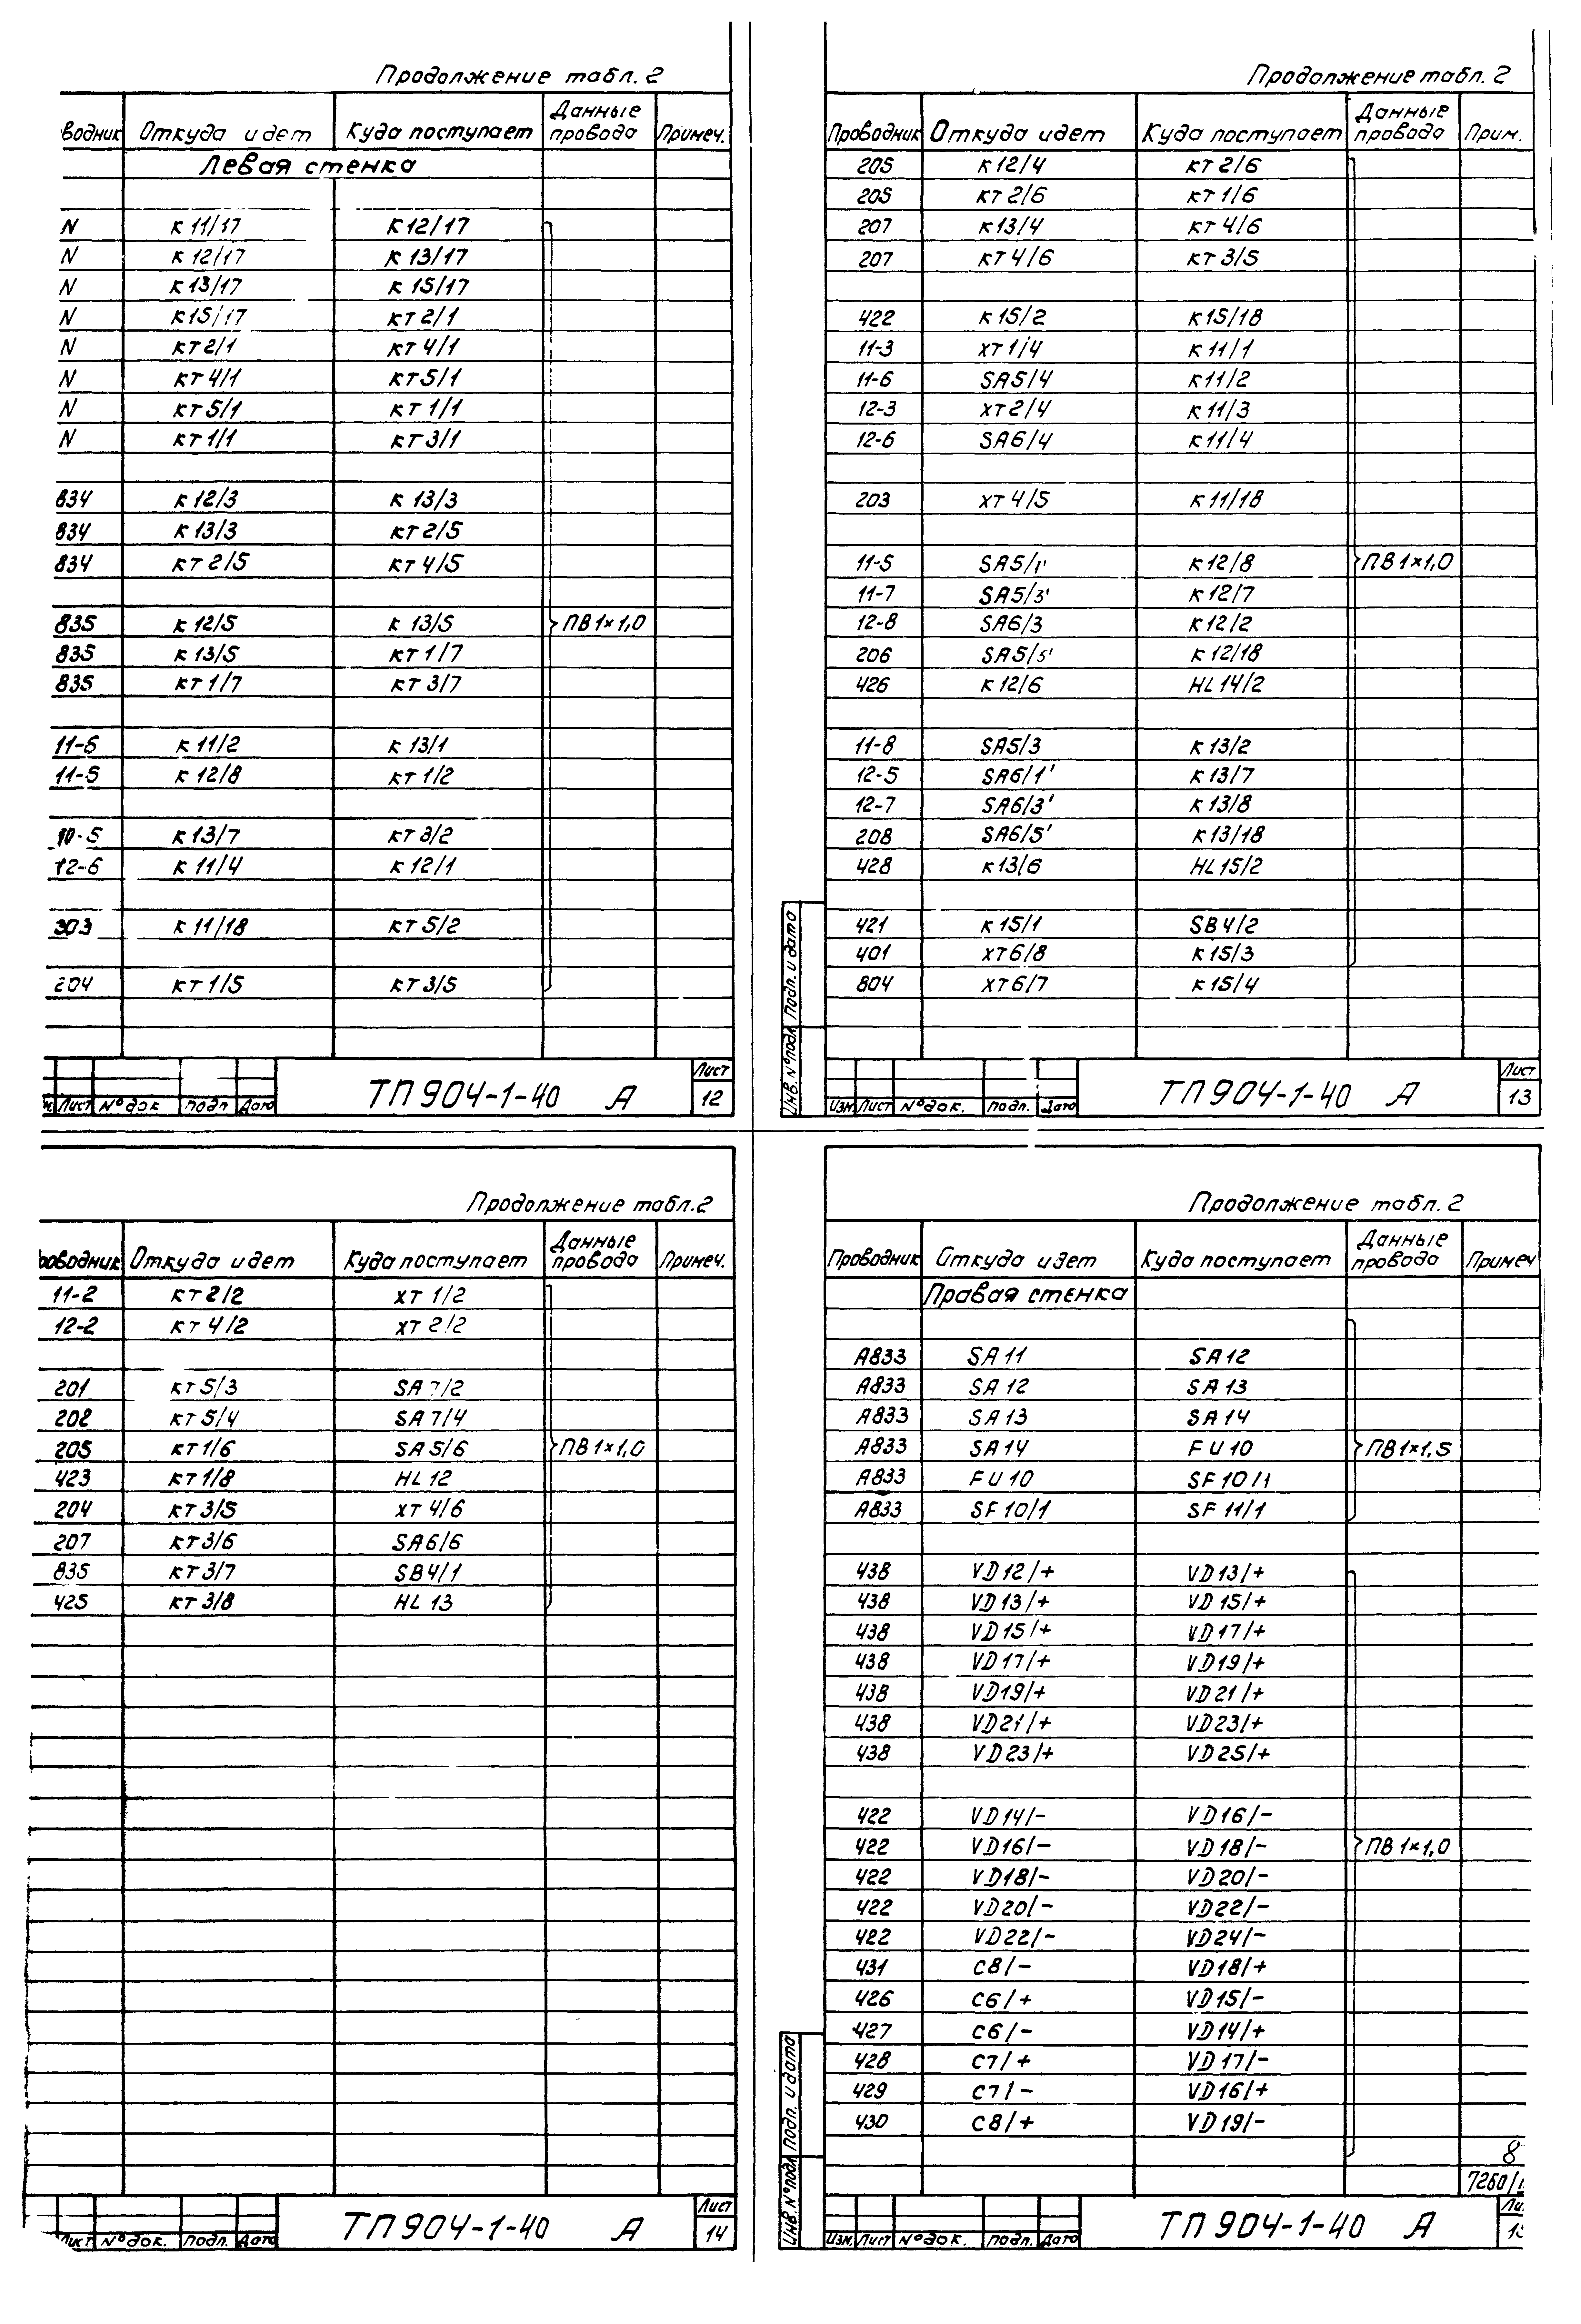 Продолжение табл. 2
водник Откуда идет Куда поступает Данные провода Примеч.
Левая стенка
N К11/17 К12/17
N К12/17 К13/17
N К13/17 К15/17
N К15/17 КТ2/1
N КТ2/1 КТ4/1
N КТ4/1 КТ5/1
N КТ5/1 КТ1/1
N КТ1/1 КТ3/1
834 К12/3 К13/3
834 К13/3 КТ2/5
834 КТ2/5 КТ4/5
835 К12/5 К13/5 ПВ1×1,0
835 К13/5 КТ1/7
835 КТ1/7 КТ3/7
11-6 К11/2 К13/1
11-5 К12/8 КТ1/2
К13/7 КТ3/2
12-6 К11/4 К12/1
303 К11/18 КТ5/2
204 КТ1/5 КТ3/5
Лист № док подп Дата ТП904-1-40 А Лист 12
Продолжение табл. 2
Проводник Откуда идет Куда поступает Данные провода Прим.
205 К12/4 КТ2/6
205 КТ2/6 КТ1/6
207 К13/4 КТ4/6
207 КТ4/6 КТ3/5
422 К15/2 К15/18
11-3 ХТ1/4 К11/1
11-6 SA5/4 К11/2
12-3 ХТ2/4 К11/3
12-6 SA6/4 К11/4
203 ХТ4/5 К11/18
11-5 SA5/1' К12/8 ПВ1×1,0
11-7 SA5/3' К12/7
12-8 SA6/3 К12/2
206 SA5/5' К12/18
426 К12/6 HL14/2
11-8 SA5/3 К13/2
12-5 SA6/1' К13/7
12-7 SA6/3' К13/8
208 SA6/5' К13/18
428 К13/6 HL15/2
421 К15/1 SB4/2
401 ХТ6/8 К15/3
804 ХТ6/7 К15/4
Инв. № подл. Подп. и дата
Изм. Лист № док. подп. Дата ТП904-1-40 А Лист 13
Продолжение табл. 2
роводник Откуда идет Куда поступает Данные провода Примеч.
11-2 КТ2/2 ХТ1/2
12-2 КТ4/2 ХТ2/2
201 КТ5/3 SA7/2
202 КТ5/4 SA7/4
205 КТ1/6 SA5/6 ПВ1×1,0
423 КТ1/8 HL12
204 КТ3/5 ХТ4/6
207 КТ3/6 SA6/6
835 КТ3/7 SB4/1
425 КТ3/8 HL13
Лист № док. подп. Дата ТП904-1-40 А Лист 14
Продолжение табл. 2
Проводник Откуда идет Куда поступает Данные провода Примеч
Правая стенка
А833 SA11 SA12
А833 SA12 SA13
А833 SA13 SA14
А833 SA14 FU10 ПВ1×1,5
А833 FU10 SF10/1
А833 SF10/1 SF11/1
438 VD12/+ VD13/+
438 VD13/+ VD15/+
438 VD15/+ VD17/+
438 VD17/+ VD19/+
438 VD19/+ VD21/+
438 VD21/+ VD23/+
438 VD23/+ VD25/+
422 VD14/- VD16/-
422 VD16/- VD18/- ПВ1×1,0
422 VD18/- VD20/-
422 VD20/- VD22/-
422 VD22/- VD24/-
431 С8/- VD18/+
426 С6/+ VD15/-
427 С6/- VD14/+
428 С7/+ VD17/-
429 С7/- VD16/+
430 С8/+ VD19/-
8
7260/
Инв. № подл. Подп. и дата
Изм. Лист № док. подп. Дата ТП904-1-40 А